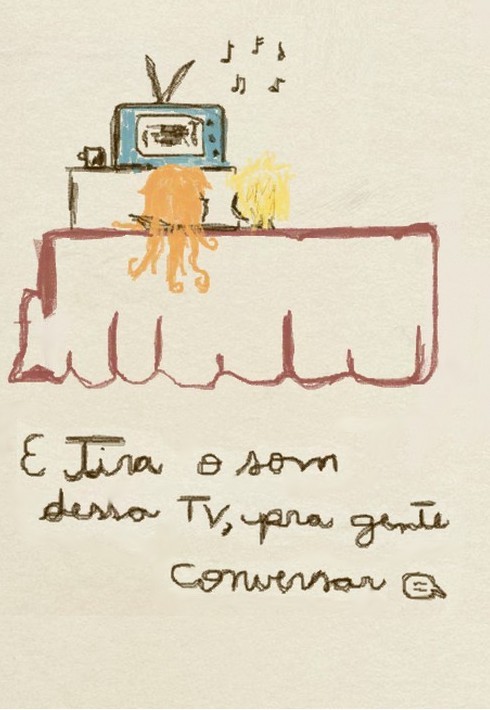 E Tira o som
dessa TV, pra gente
Conversar